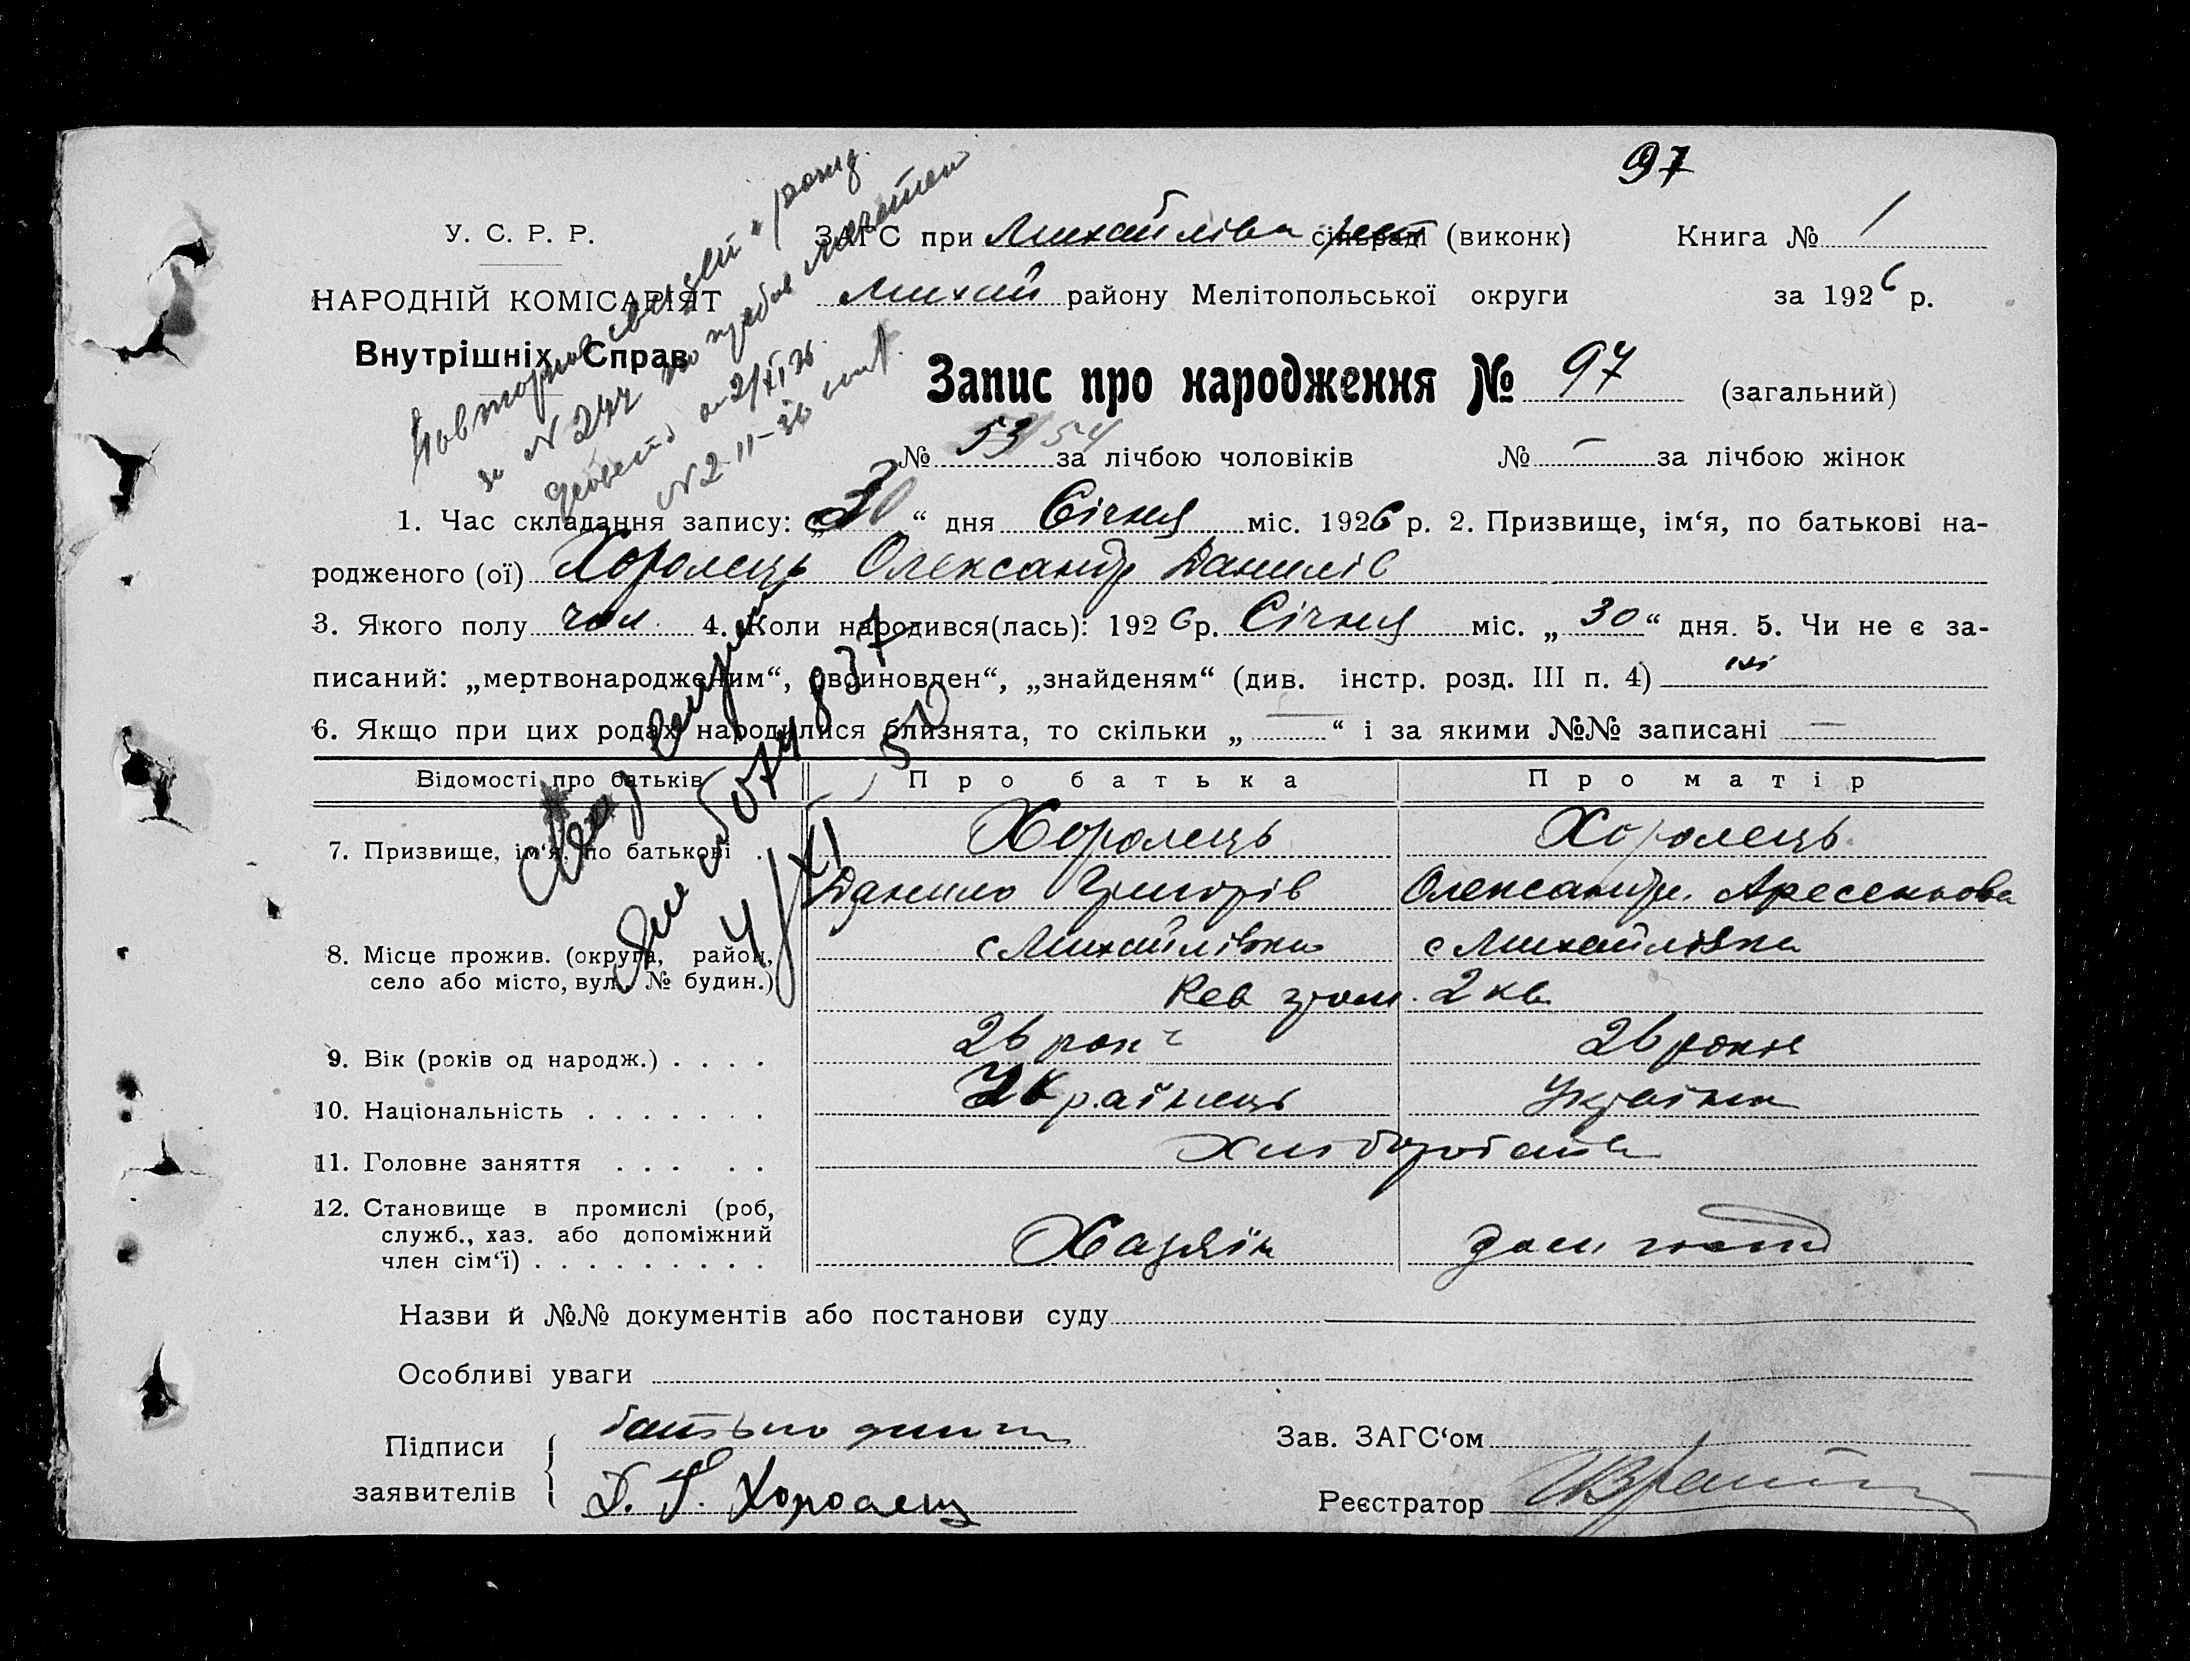 97
У. С. Р. Р.
ЗАГС при Михайлівн сільраді (виконк)
Книга № 1
НАРОДНІЙ КОМІСАРІЯТ
Михай району Мелітопольської округи
за 1926 р.
Внутрішніх Справ
Запис про народження № 97 (загальний)
№ 53 54 за лічбою чоловіків № — за лічбою жінок
1. Час складання запису: „30“ дня Січня міс. 1926 р. 2. Призвище, ім‘я, по батькові на-
родженого (ої) Хоролець Олександр Данилів
3. Якого полу чол. 4. Коли народився(лась): 1926 р. Січня міс. „30“ дня. 5. Чи не є за-
писаний: „мертвонародженим“, „всиновлен“, „знайденям“ (див. інстр. розд. III п. 4) ні
6. Якщо при цих родах народилися близнята, то скільки „—“ і за якими №№ записані —
Відомості про батьків Про батька Про матір
7. Призвище, ім‘я, по батькові . Хоролець Хоролець
Данило Григорів Олександр. Арсенкова
8. Місце прожив. (округа, район, с Михайлівка с Михайлівка
село або місто, вул., № будин.) Рев гром. 2 кв.
9. Вік (років од народж.) . . . . 26 рок 26 років
10. Національність . . . . . . . Українець Українка
11. Головне заняття . . . . . Хліборобств
12. Становище в промислі (роб,
служб., хаз. або допоміжний
член сім‘ї) . . . . . . . . . Хазяїн дом госп
Назви й №№ документів або постанови суду
Особливі уваги
Підписи
заявителів
батько
Д. Г. Хоролец
Зав. ЗАГС‘ом
Реєстратор